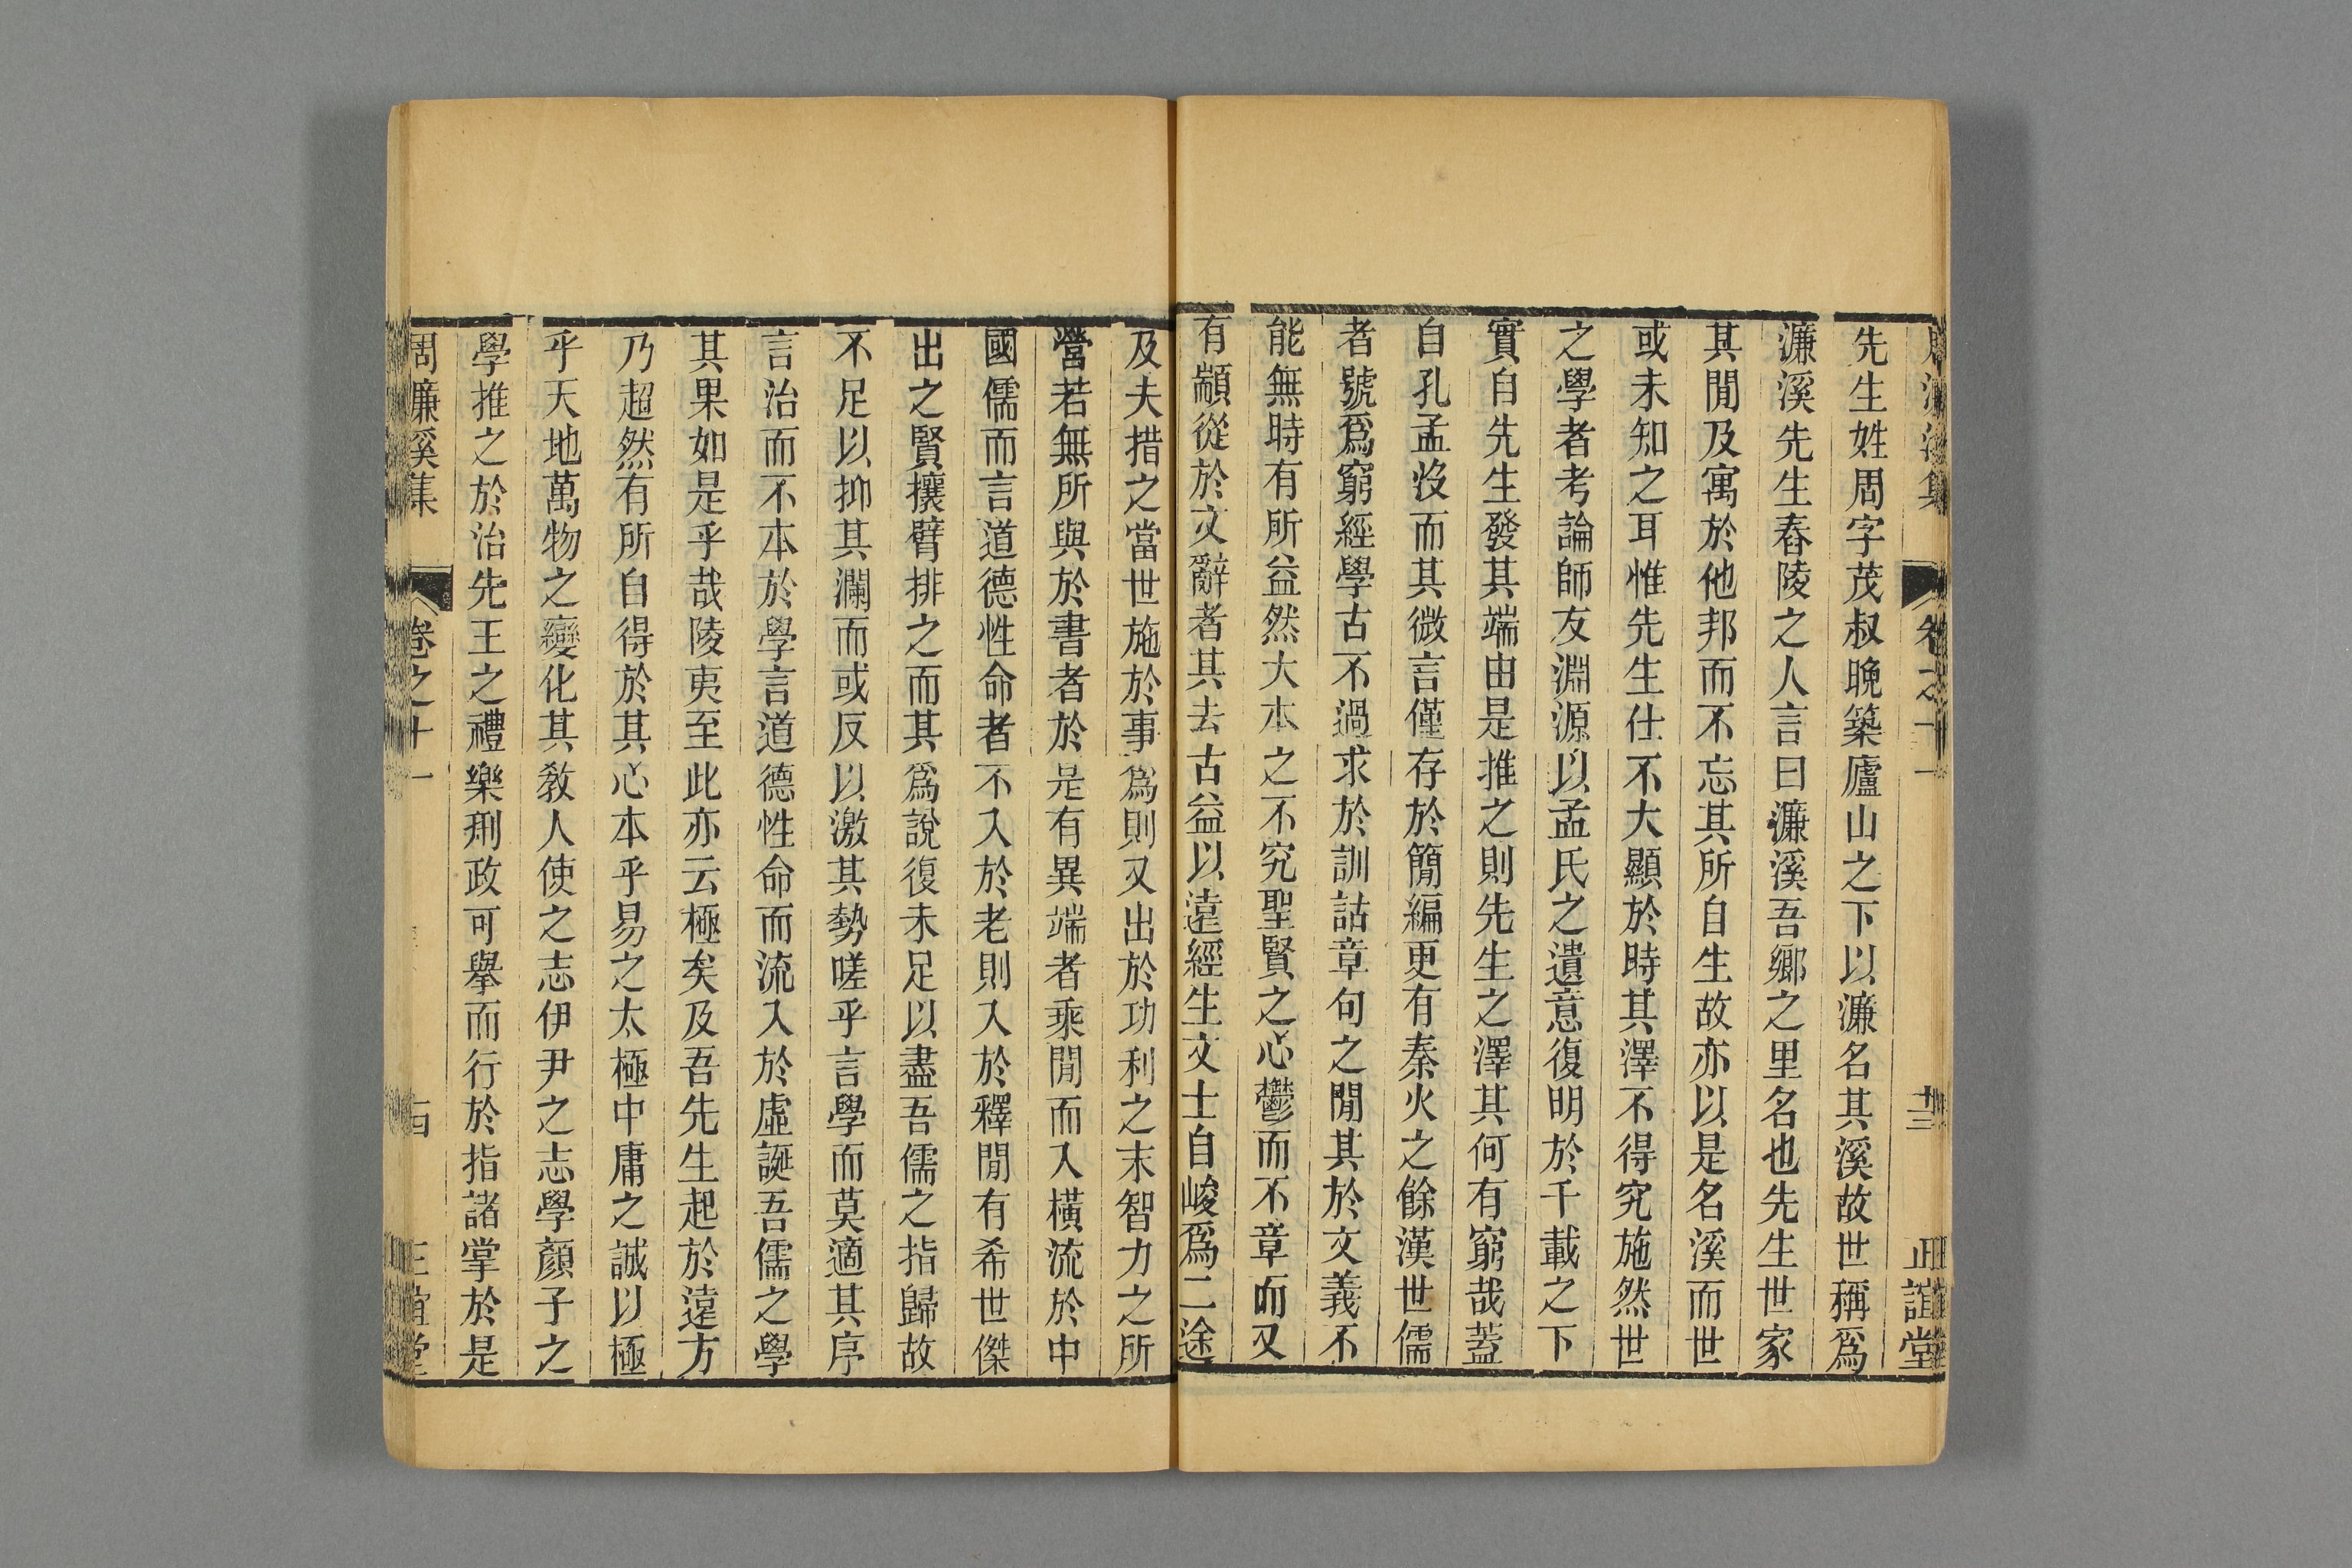 先生姓周字茂叔晚築廬山之下以濂名其溪故世稱爲
濂溪先生舂陵之人言曰濂溪吾鄉之里名也先生世家
其閒及寓於他邦而不忘其所自生故亦以是名溪而世
或未知之耳惟先生仕不大顯於時其澤不得究施然世
之學者考論師友淵源以孟氏之遺意復明於千載之下
實自先生發其端由是推之則先生之澤其何有窮哉蓋
自孔孟沒而其微言僅存於簡編更有秦火之餘漢世儒
者號爲窮經學古不過求於訓詁章句之閒其於文義不
能無時有所益然大本之不究聖賢之心鬱而不章而又
有顓從於文辭者其去古益以遠經生文士自峻爲二途
及夫措之當世施於事爲則又出於功利之末智力之所
營若無所與於書者於是有異端者乘閒而入橫流於中
國儒而言道德性命者不入於老則入於釋閒有希世傑
出之賢攘臂排之而其爲說復未足以盡吾儒之指歸故
不足以抑其瀾而或反以激其勢嗟乎言學而莫適其序
言治而不本於學言道德性命而流入於虛誕吾儒之學
其果如是乎哉陵夷至此亦云極矣及吾先生起於遠方
乃超然有所自得於其心本乎易之太極中庸之誠以極
乎天地萬物之變化其敎人使之志伊尹之志學顏子之
學推之於治先王之禮樂刑政可擧而行於指諸掌於是
周濂溪集 卷之十一